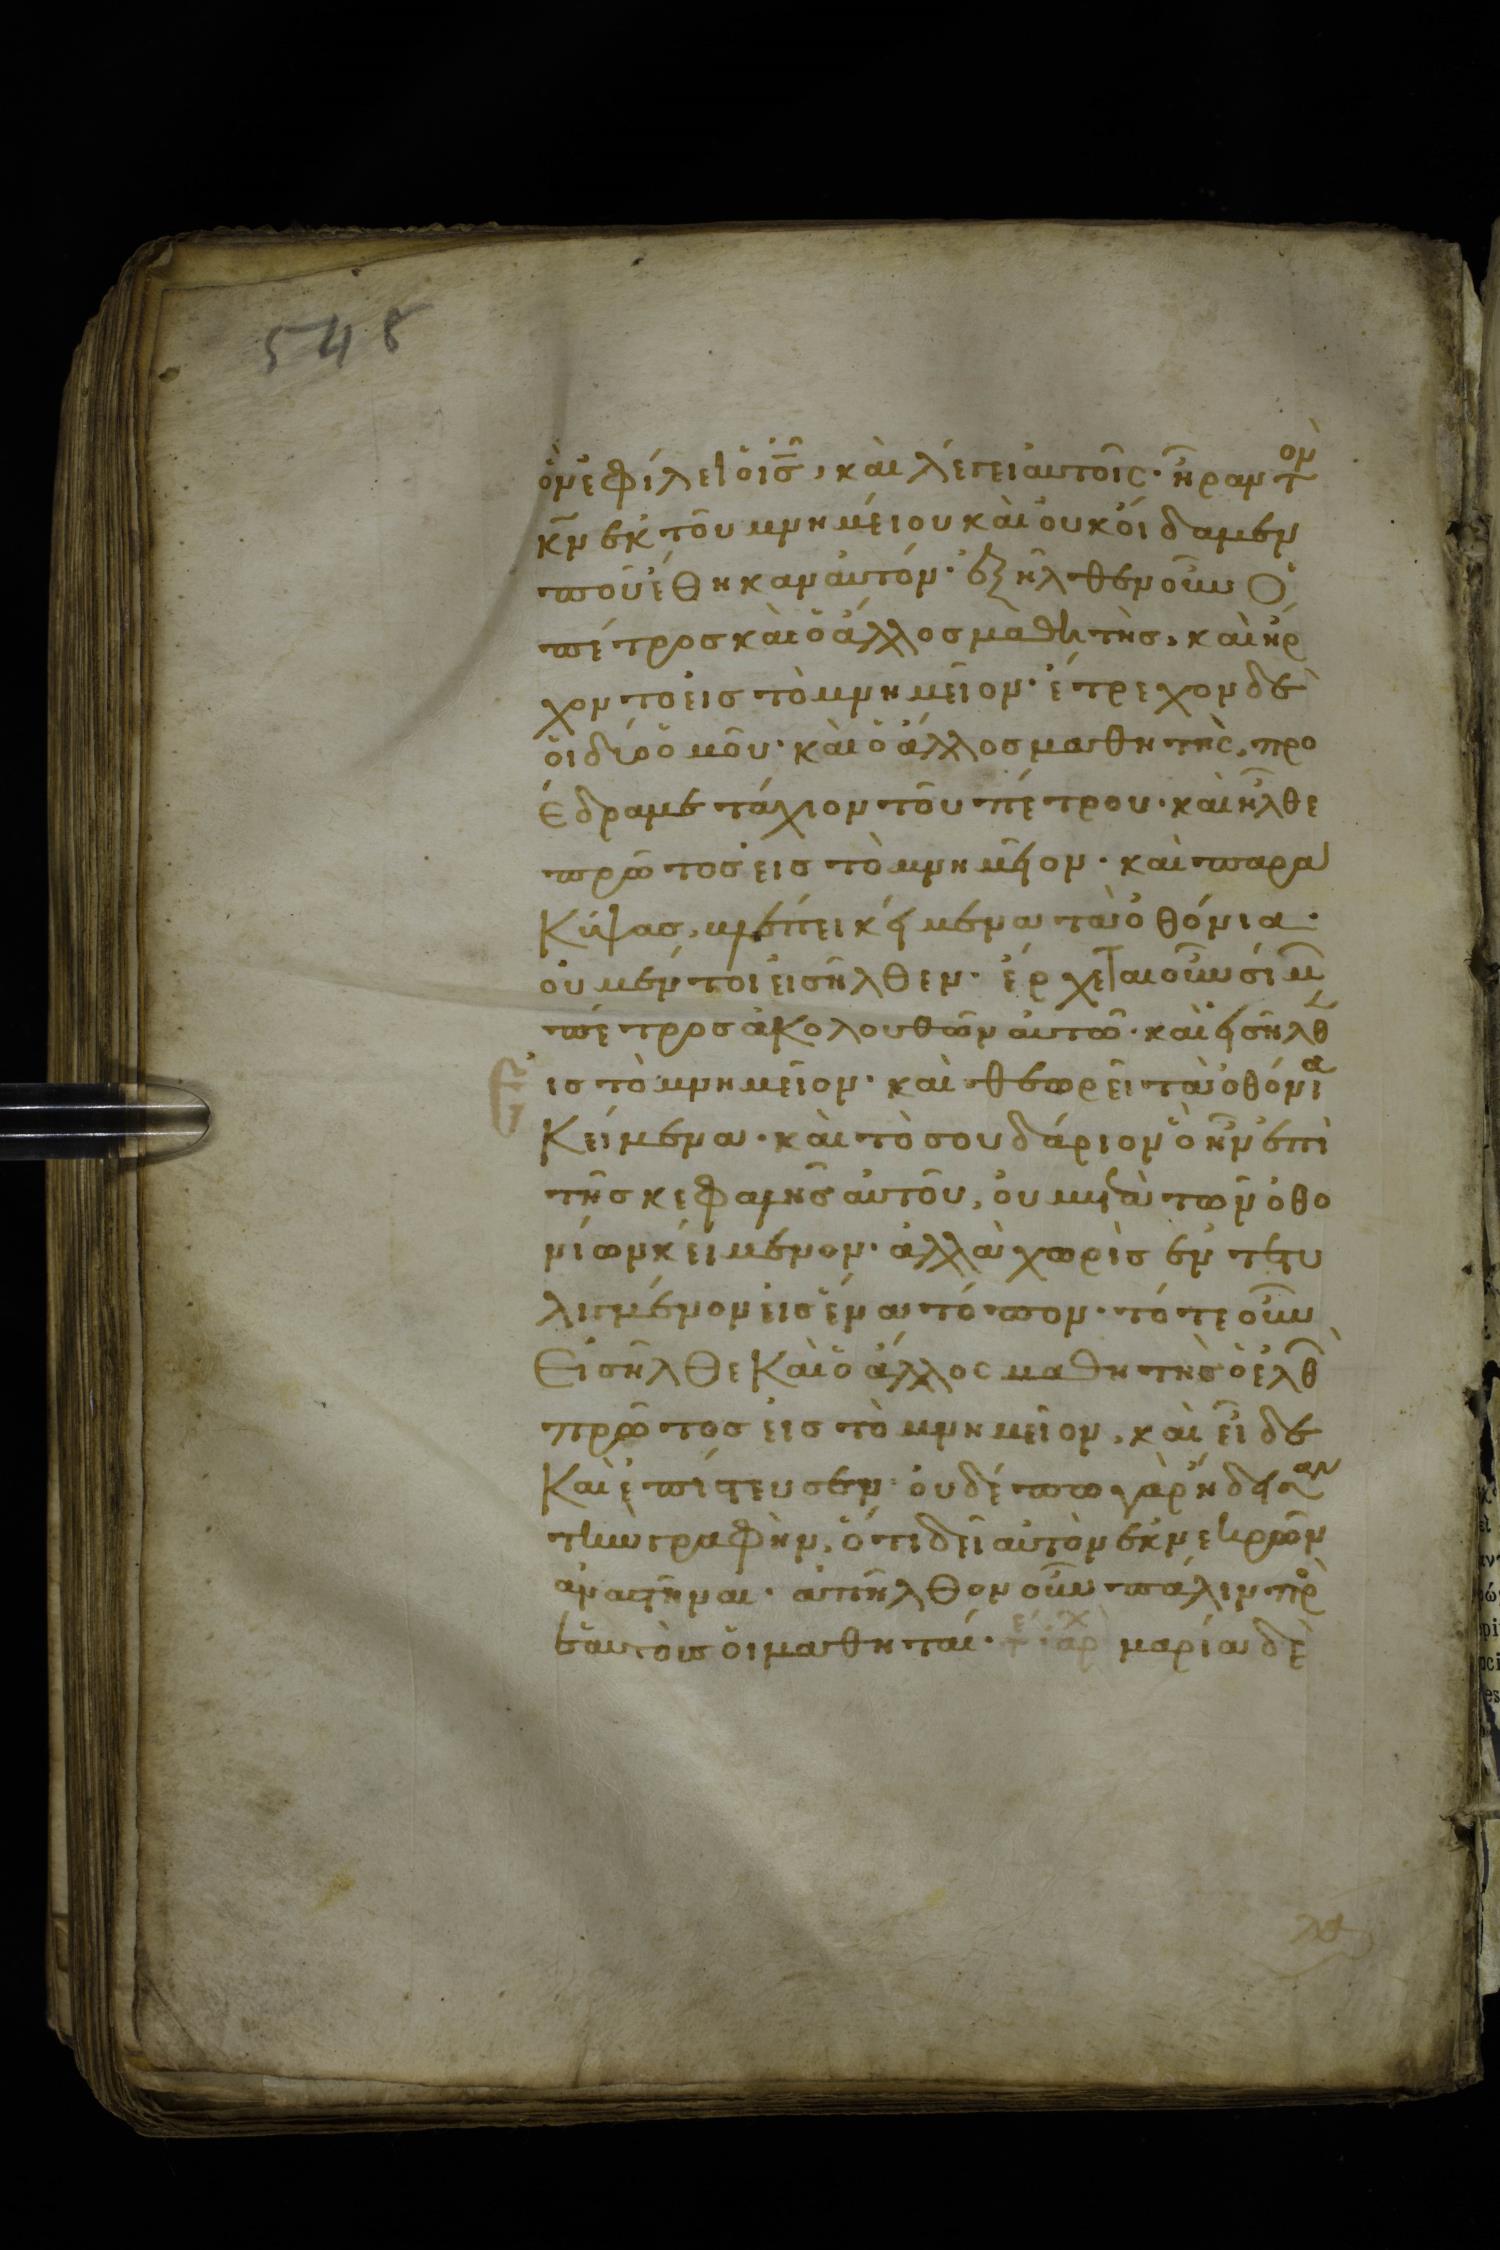 548
ὃν ἐφίλει ὁ ις̅, καὶ λέγει αὐτοῖς· ἦραν τὸν
κ̅ν ἐκ τοῦ μνημείου καὶ οὐκ οἴδαμεν
ποῦ ἔθηκαν αὐτόν· ἐξῆλθεν οὖν ὁ
πέτρος καὶ ὁ ἄλλος μαθητὴς, καὶ ἤρ
χοντο εἰς τὸ μνημεῖον· ἔτρεχον δὲ
οἱ δύο ὁμοῦ· καὶ ὁ ἄλλος μαθητὴς, προ
έδραμε τάχιον τοῦ πέτρου· καὶ ἦλθε
πρῶτος εἰς τὸ μνημεῖον· καὶ παρα
κύψας, βλέπει κείμενα τὰ ὀθόνια·
οὐ μέντοι εἰσῆλθεν· ἔρχεται οὖν σίμ
πέτρος ἀκολουθῶν αὐτῶ· καὶ εἰσῆλθ
εἰς τὸ μνημεῖον· καὶ θεωρεῖ τὰ ὀθόνια
κείμενα· καὶ τὸ σουδάριον ὃ ἦν ἐπὶ
τῆς κεφαλῆς αὐτοῦ, οὐ μετὰ τῶν ὀθο
νίων κείμενον· ἀλλὰ χωρὶς ἐντετυ
λιγμένον εἰς ἕνα τόπον· τότε οὖν
εἰσῆλθε καὶ ὁ ἄλλος μαθητὴς ὁ ἐλθ
πρῶτος εἰς τὸ μνημεῖον, καὶ εἶδε
καὶ ἐπίστευσεν· οὐδέπω γὰρ ἤδεισαν
τὴν γραφὴν, ὅτι δεῖ αὐτὸν ἐκ νεκρῶν
ἀναστῆναι· ἀπῆλθον οὖν πάλιν πρ
ἑαυτοὺς οἱ μαθηταί· μαρία δὲ